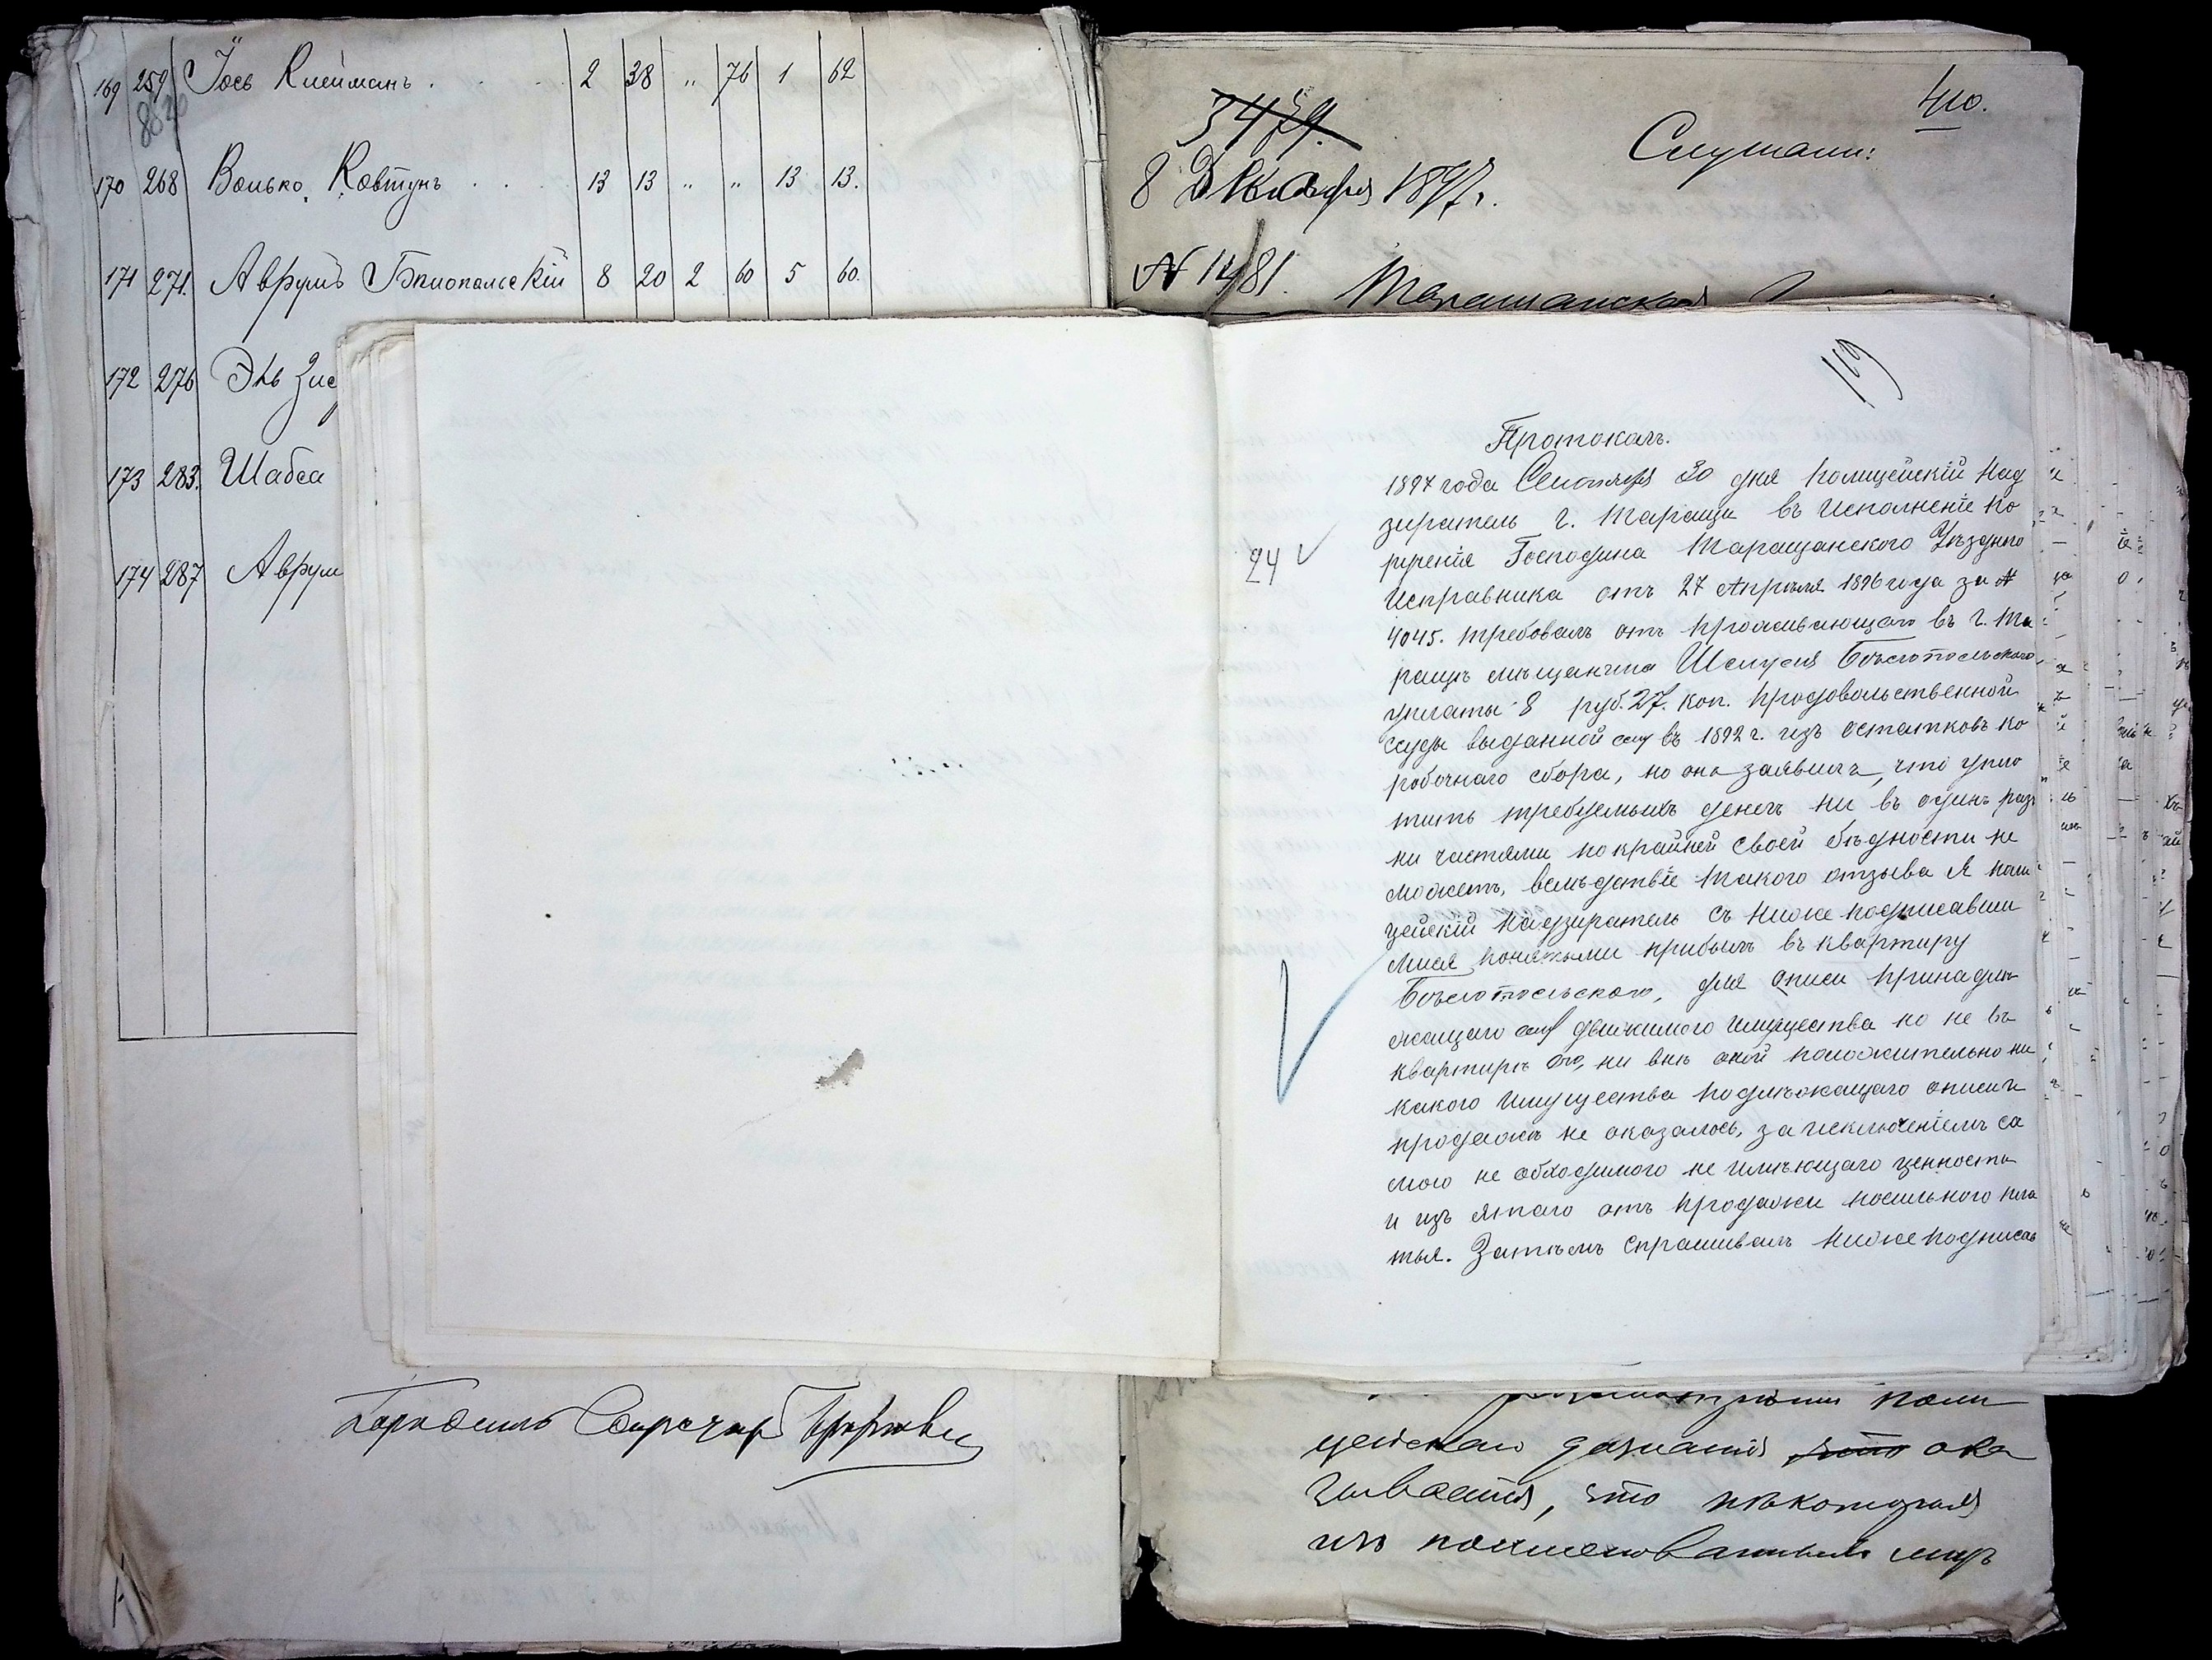 169 259 Іось Клейманъ . . . 2 38 „ 76 1 62
8820
170 268 Волько Ковтунъ . . . 13 13 „ „ 13 13.
171 271. Аврумъ Бѣлопольскій 8 20 2 60 5 60.
172 276 Эль Зис
173 283. Шабса
174 287 Аврум
410.
3479.
Слушали:
8 Декабря 1897 г.
№ 1481.
Таращанская
119
Протоколъ.
1897 года Сентября 30 дня Полицейскій Над
зиратель г. Таращи въ исполненіе по
рученія Господина Таращанского Уѣздного
Исправника отъ 27 Апрѣля 1896 года за №
4045. требовалъ отъ проживающаго въ г. Та
ращѣ мѣщанина Шлиусля Бѣлопольского
уплаты 8 руб. 27. коп. продовольственной
ссуды выданной ему въ 1892 г. изъ остатковъ ко
робочнаго сбора, но онъ заявилъ, что упло
тить требуемыхъ денегъ ни въ одинъ разъ
ни частями по крайней своей бѣдности не
можетъ, вслѣдствіе такого отзыва я поли
цейскій Надзиратель съ нижеподписавши
мися понятыми прибылъ въ квартиру
Бѣлопольского, для описи принадле
жащаго ему движимого имущества но не въ
квартирѣ его, ни внѣ оной положительно ни
какого имущества подлежащаго описи и
продажѣ не оказалось, за исключеніемъ са
мого не обходимого не имѣющаго ценности
и изъ ятаго отъ продажи носильного пла
тья. Затѣмъ спрашивалъ нижеподписав
24
поли
цейскаго дознанія что ока
зывается, что нѣкоторыя
изъ поименованныхъ лицъ